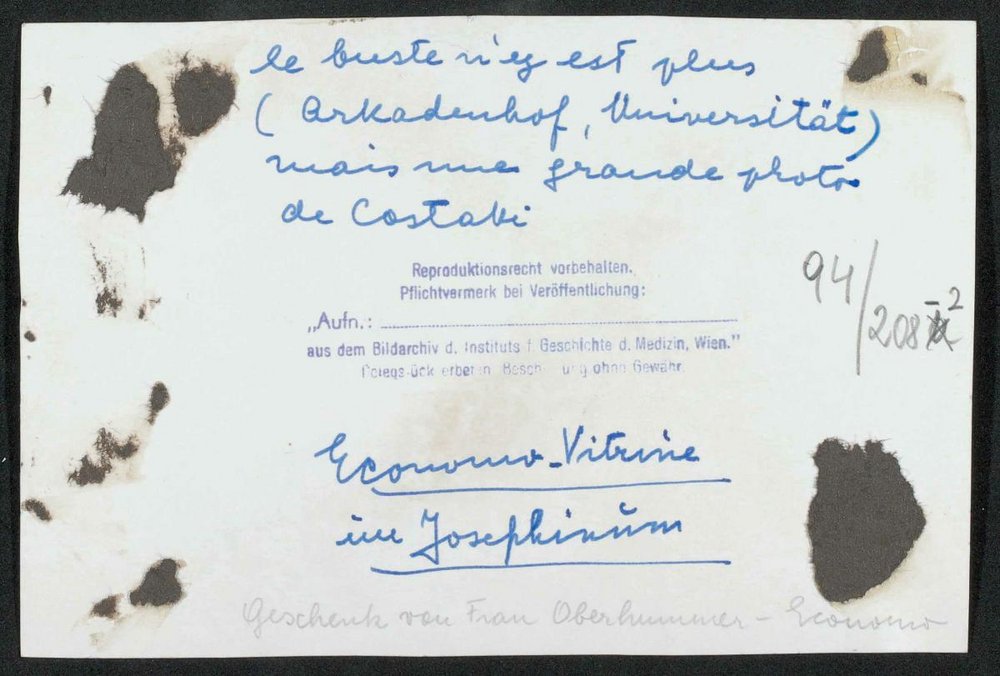 le buste n'y est plus
(Arkadenhof, Universität)
mais une grande photo
de Costaki
Reproduktionsrecht vorbehalten.
Pflichtvermerk bei Veröffentlichung:
„Aufn.:
aus dem Bildarchiv d. Instituts f. Geschichte d. Medizin, Wien."
ohne Gewähr.
94/208 2
Economo-Vitrine
im Josephinum
Geschenk von Frau Oberhummer - Economo